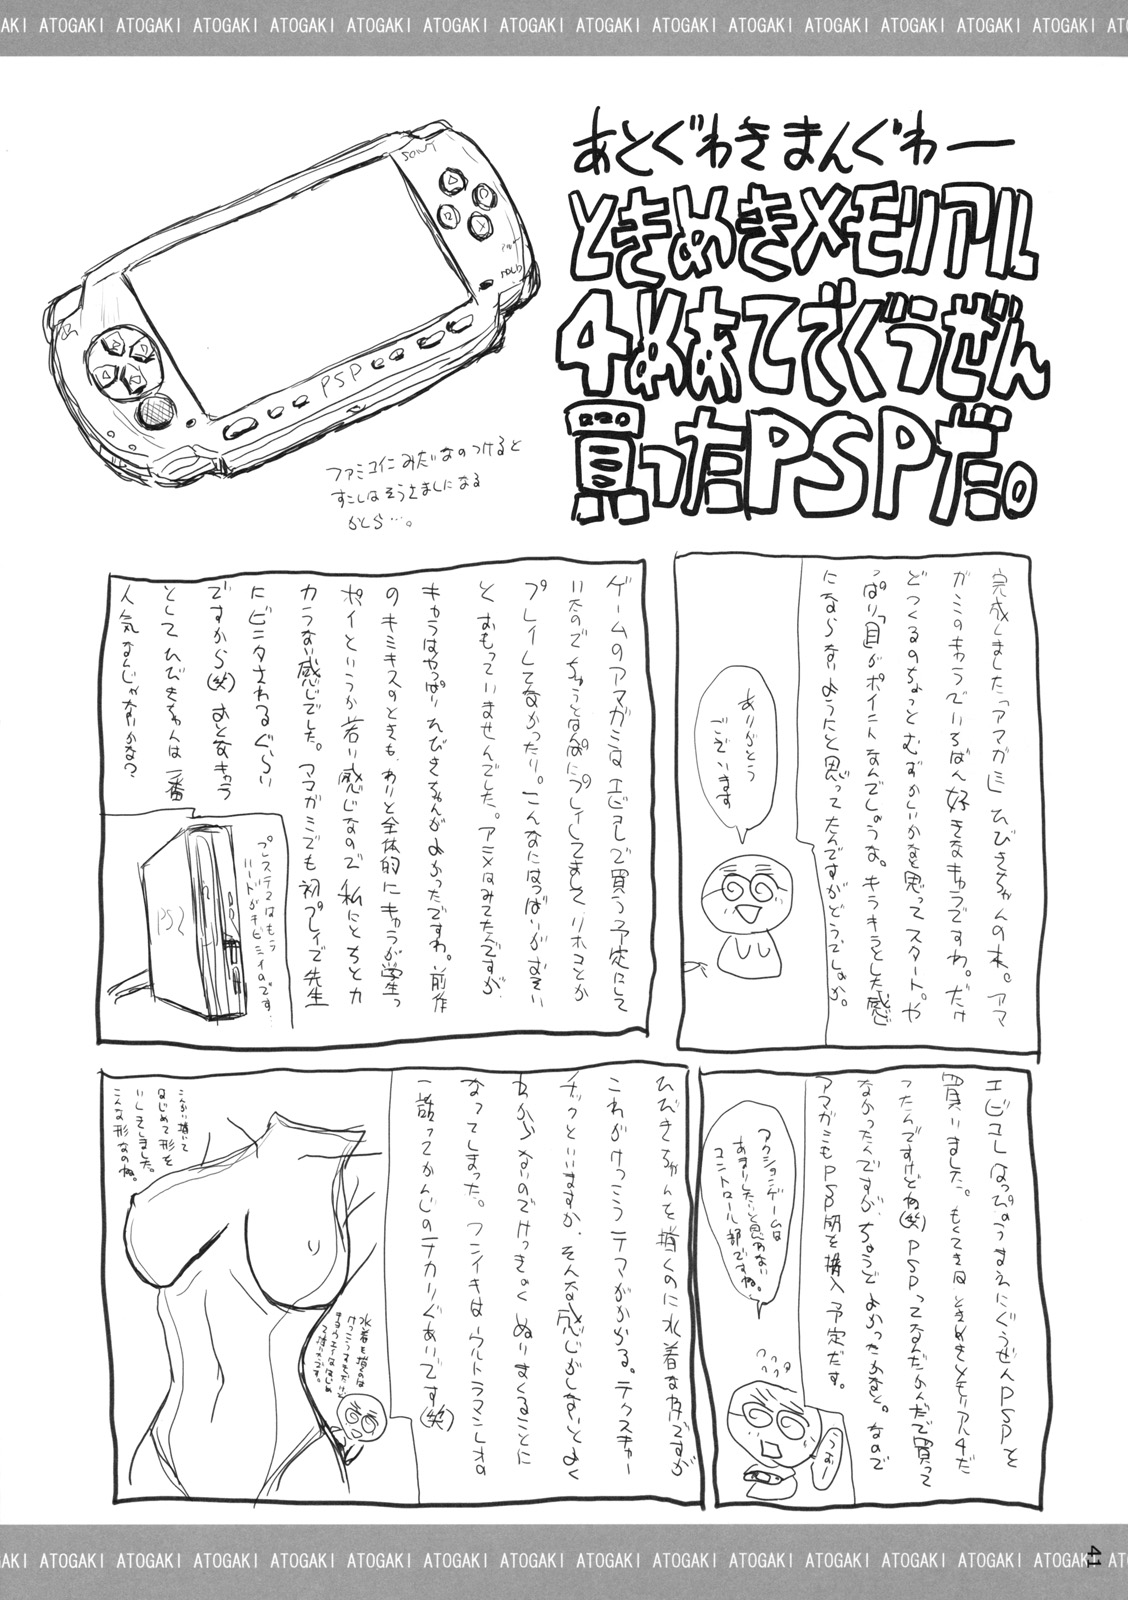 ATOGAKI ATOGAKI ATOGAKI ATOGAKI ATOGAKI ATOGAKI ATOGAKI ATOGAKI ATOGAKI ATOGAKI ATOGAKI ATOGAKI ATOGAKI
あとぐわきまんぐわー
ときめきメモリアル
4めあてでぐうぜん
買ったPSPだ。
SONY
HOLD
PSP
ファミコンみたいなのつけると
すこしはそうさましになる
かとら…。
完成しました「アマガミ」ひびきちゃんの本。アマ
ガミのキャラでいちばん好きなキャラですわ。だけ
どつくるのちょっとむずかしいかなと思ってスタート。や
っぱり「目」がポイントなんでしょうな。キラキラとした感じ
にならないようにと思ってたんですがどうでしょか。
ありがとう
ございます
ゲームのアマガミはエビコレで買う予定にして
いたのでちゅうとはんぱにプレイしてまして、リホコとか
プレイしてなかったり。こんなにはつばいがおそい
とおもっていませんでした。アニメはみてたんですが、
キャラはやっぱりひびきちゃんがよかったですわ。前作
のキミキスのときも、わりと全体的にキャラが学生っ
ポイというか若い感じなので私にとちとカ
カラない感じでした。アマガミでも初プレイで先生
にビンタされるぐらい
ですから(笑)おとなキャラ
としてひびきちゃんは一番
人気なんじゃないかな?
プレステ2はもう
ハードがキビシイのです…
PS2
エビコレはっぴょうのまえにぐうぜんPSPを
買いました。もくてきはときめきメモリアル4だ
ったんですけどね(笑)PSPってなんだかんだで買って
なかったんですが、ちょうどよかったかなと。なので
アマガミもPSP版を購入予定だす。
アクションゲームは
あまりしたいと思わない
コントロール部ですね。
つおー
ひびきちゃんを描くのに水着なわけですが
これがけっこうテマがかかる。テクスチャー
チックといいますか、そんな感じがしないとよく
わからないのでけっきょくぬりまくることに
なってしまった。フンイキはウルトラマンレオの
1話ってかんじのテカリぐあいです(笑)
こんかい描いて
はじめて形を
いしきしました。
こんな形なのね。
水着を描くのは
ATOGAKI ATOGAKI ATOGAKI ATOGAKI ATOGAKI ATOGAKI ATOGAKI ATOGAKI ATOGAKI ATOGAKI ATOGAKI ATOGAKI ATOGAKI
41